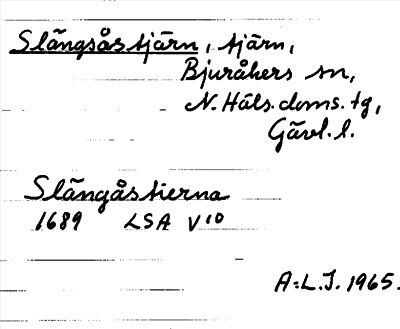 Slängsåstjärn, tjärn,
Bjuråkers sn,
N. Häls. doms. tg,
Gävl. l.
Slängåstierna
1689 LSA V10
A:L.J. 1965.